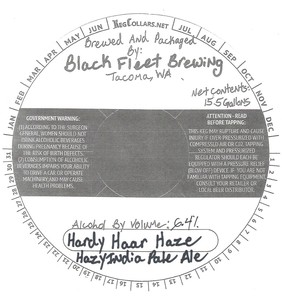 KEGCOLLARS.NET
JAN FEB MAR APR MAY JUN JUL AUG SEP OCT NOV DEC
Brewed And Packaged
By:
Black Fleet Brewing
Tacoma, WA
Net Contents:
15.5 Gallons
GOVERNMENT WARNING:
(1) ACCORDING TO THE SURGEON
GENERAL, WOMEN SHOULD NOT
DRINK ALCOHOLIC BEVERAGES
DURING PREGNANCY BECAUSE OF
THE RISK OF BIRTH DEFECTS.
(2) CONSUMPTION OF ALCOHOLIC
BEVERAGES IMPAIRS YOUR ABILITY
TO DRIVE A CAR OR OPERATE
MACHINERY AND MAY CAUSE
HEALTH PROBLEMS.
ATTENTION - READ
BEFORE TAPPING:
THIS KEG MAY RUPTURE AND CAUSE
INJURY IF OVER PRESSURIZED WITH
COMPRESSED AIR OR CO2. TAPPING
SYSTEM AND PRESSURIZED
REGULATOR SHOULD EACH BE
EQUIPPED WITH A PRESSURE RELIEF
(BLOW OFF) DEVICE. IF YOU ARE NOT
FAMILIAR WITH TAPPING EQUIPMENT,
CONTACT YOUR RETAILER OR
LOCAL BEER DISTRIBUTOR.
Alcohol By Volume:
Hardy Haar Haze
Hazy India Pale Ale